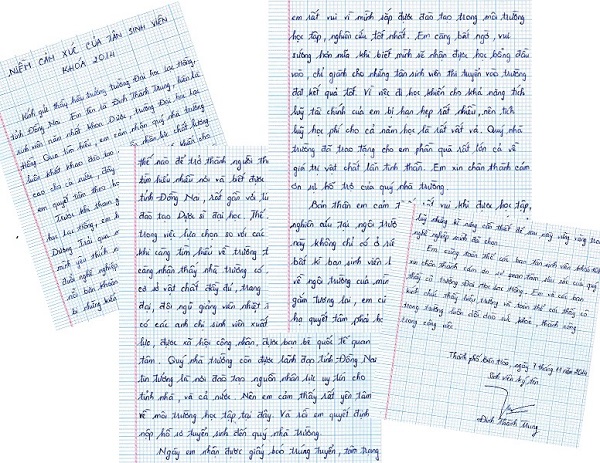 NIỀM CẢM XÚC CỦA TÂN SINH VIÊN
KHÓA 2014
Kính gửi thầy hiệu trưởng trường Đại học Lạc Hồng,
tỉnh Đồng Nai. Em tên là Đinh Thành Trung, hiện là
sinh viên năm nhất khoa Dược, trường Đại học Lạc
Hồng. Qua tìm hiểu, em cảm nhận quý nhà trường
luôn khát khao đào tạo
cao cho cả nước
em quyết tâm theo học
Trước khi tham gia
học Lạc Hồng, em
Dương. Trải qua
mình yêu thích
đuổi nghề nghiệp
nỗi băn khoăn
thế nào để trở thành người th
tìm hiểu nhiều nơi và biết được
tỉnh Đồng Nai, rất gần với
đào tạo Dược sĩ đại học. Thế
trong việc lựa chọn so với các
khi càng tìm hiểu về trường t
càng nhận thấy nhà trường có
cơ sở vật chất đầy đủ, trang
đại, đội ngũ giảng viên nhiệt
có các anh chị sinh viên xuất
lực, được xã hội công nhận, được bạn bè quốc tế quan
tâm. Quý nhà trường còn được lãnh đạo tỉnh Đồng Nai
tin tưởng là nơi đào tạo nguồn nhân lực uy tín cho
tỉnh nhà, và cả nước. Nên em cảm thấy rất yên tâm
về môi trường học tập tại đây. Và rồi em quyết định
nộp hồ sơ tuyển sinh đến quý nhà trường.
Ngày em nhận được giấy báo trúng tuyển, tâm trạng
em rất vui vì mình sắp được đào tạo trong môi trường
học tập, nghiên cứu tốt nhất. Em càng bất ngờ, vui
sướng hơn nữa khi biết mình sẽ nhận được học bổng đầu
vào, chỉ giành cho những tân sinh viên thi tuyển vào trường
đạt kết quả tốt. Vì việc đi học khiến cho khả năng tích
lũy tài chính của em bị hạn hẹp rất nhiều, nên tích
lũy học phí cho cả năm học là rất vất vả. Quý nhà
trường đã trao tặng cho em phần quà rất lớn cả về
giá trị vật chất lẫn tinh thần. Em xin chân thành cảm
ơn sự hỗ trợ của quý nhà trường.
Bản thân em cảm t rất vui khi được học tập,
nghiên cứu tại ngôi trườ
này không chỉ có ở
bất kì bạn sinh viên
về ngôi trường của mìn
gắm tương lai, em cũ
hứa quyết tâm phải
nghề nghiệp mình đã chọn.
Em cùng toàn thể các bạn tân sinh viên khóa
xin chân thành cảm ơn sự quan tâm sâu sắc của quý
thầy cô trường Đại học Lạc Hồng. Em và các bạn
kính chúc thầy hiệu trưởng và toàn thể các thầy cô
trong trường luôn dồi dào sức khỏe, thành công
trong công việc.
Thành phố Biên Hòa, ngày 7 tháng 11 năm 2014
Sinh viên ký tên
Đinh Thành Trung